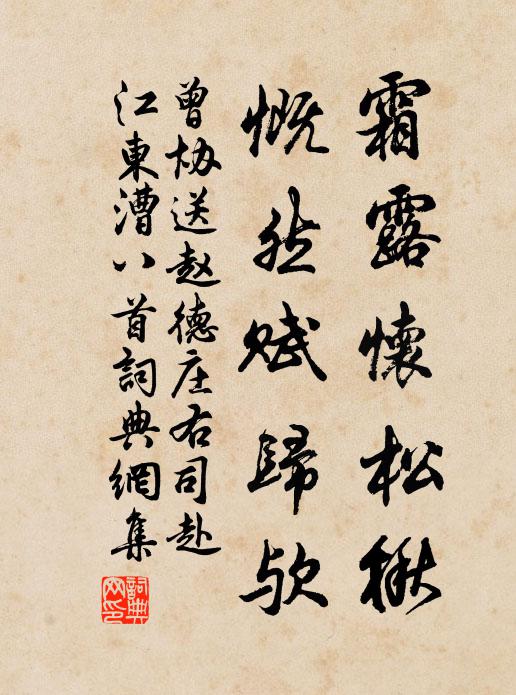 霜露懷松楸
慨然賦歸欤
曾协送赵德庄右司赴
江東漕八首詞典網集
詞典网印